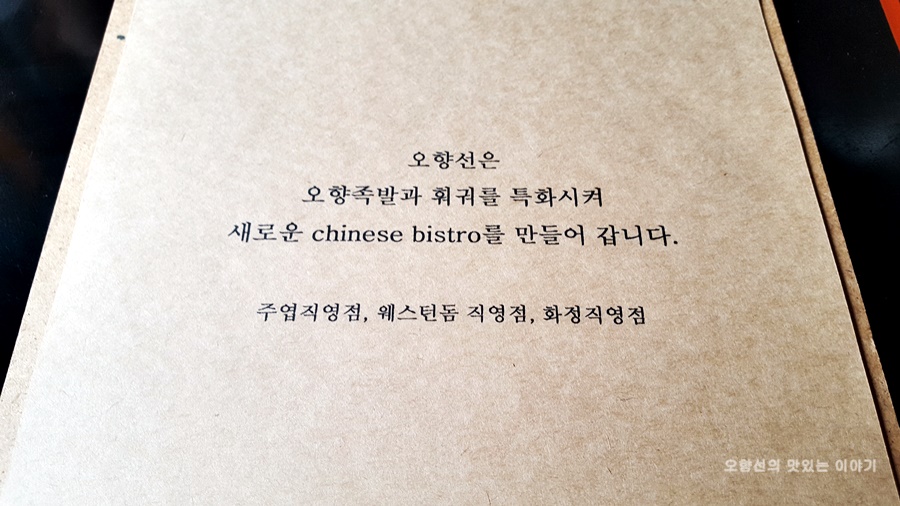 오향선은
오향족발과 훠궈를 특화시켜
새로운 chinese bistro를 만들어 갑니다.
주엽직영점, 웨스턴돔 직영점, 화정직영점
오향선의 맛있는 이야기